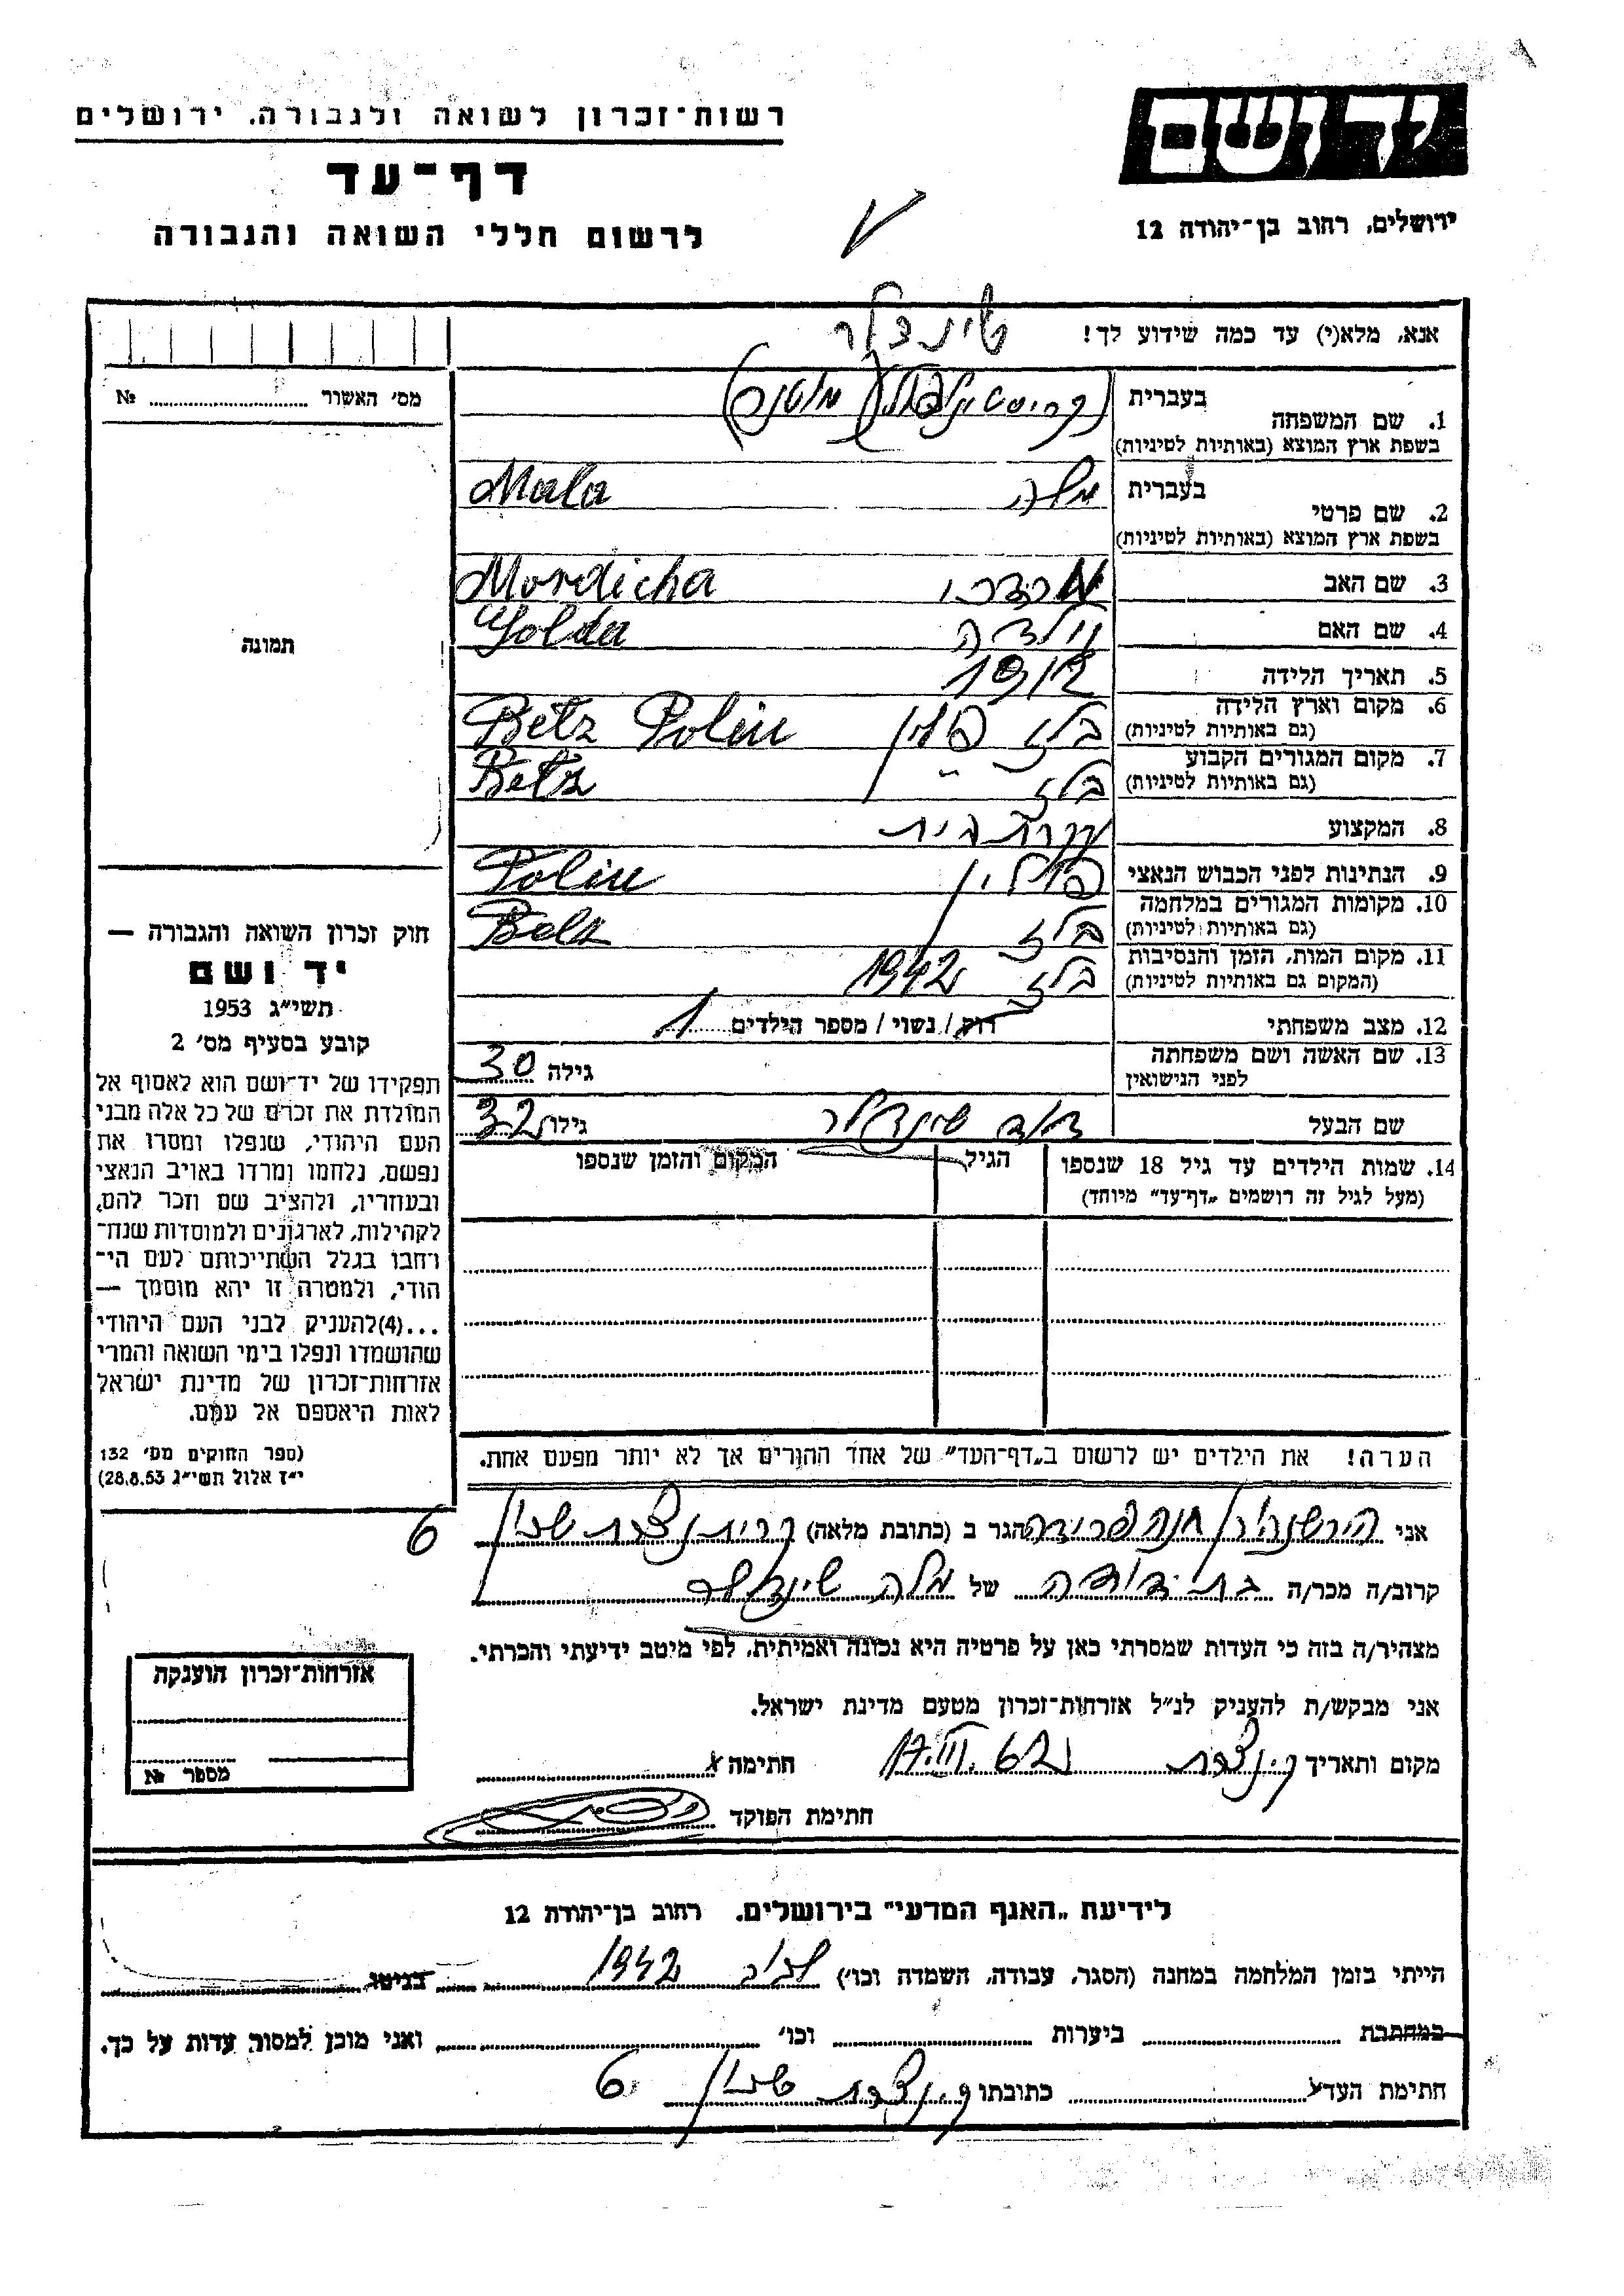 יד ושם
ירושלים, רחוב בן־יהודה 12
רשות־זכרון לשואה ולגבורה, ירושלים
דף־עד
לרשום חללי השואה והגבורה
אנא, מלא(י) עד כמה שידוע לך!
שינדלר
1. שם המשפחה
בעברית
בשפת ארץ המוצא (באותיות לטיניות)
2. שם פרטי
בעברית מלה Mala
בשפת ארץ המוצא (באותיות לטיניות)
3. שם האב מרדכי Mordicha
4. שם האם גולדה Golda
5. תאריך הלידה 1912
6. מקום וארץ הלידה בלז פולין Betz Polin
(גם באותיות לטיניות)
7. מקום המגורים הקבוע בלז Betz
(גם באותיות לטיניות)
8. המקצוע עקרת בית
9. הנתינות לפני הכבוש הנאצי פולין Polin
10. מקומות המגורים במלחמה בלז Belz
(גם באותיות לטיניות)
11. מקום המות, הזמן והנסיבות בלז 1942
(המקום גם באותיות לטיניות)
12. מצב משפחתי רוק / נשוי / מספר הילדים 1
13. שם האשה ושם משפחתה
לפני הנישואין גילה 30
שם הבעל דוד שינדלר גילו 32
14. שמות הילדים עד גיל 18 שנספו הגיל המקום והזמן שנספו
(מעל לגיל זה רושמים „דף־עד” מיוחד)
הערה! את הילדים יש לרשום ב„דף־העד” של אחד ההורים אך לא יותר מפעם אחת.
מס׳ האשור № 
תמונה
חוק זכרון השואה והגבורה —
יד ושם
תשי״ג 1953
קובע בסעיף מס׳ 2
תפקידו של יד־ושם הוא לאסוף אל
המולדת את זכרם של כל אלה מבני
העם היהודי, שנפלו ומסרו את
נפשם, נלחמו ומרדו באויב הנאצי
ובעוזריו, ולהציב שם וזכר להם,
לקהילות, לארגונים ולמוסדות שנח־
רחבו בגלל השתייכותם לעם הי־
הודי, ולמטרה זו יהא מוסמך —
...(4)להעניק לבני העם היהודי
שהושמדו ונפלו בימי השואה והמרי
אזרחות־זכרון של מדינת ישראל
לאות היאספם אל עמם.
(ספר החוקים מס׳ 132
י״ז אלול תשי״ג 28.8.53)
אני הגר ב (כתובת מלאה) קרית נצרת שכון 6
קרוב/ה מכר/ה בת דודה של מלה שינדלר
מצהיר/ה בזה כי העדות שמסרתי כאן על פרטיה היא נכונה ואמיתית, לפי מיטב ידיעתי והכרתי.
אני מבקש/ת להעניק לנ״ל אזרחות־זכרון מטעם מדינת ישראל.
מקום ותאריך ק. נצרת 17.III.62 חתימה x
חתימת הפוקד
אזרחות־זכרון הוענקה
מספר №
לידיעת „האגף המדעי” בירושלים, רחוב בן־יהודה 12
הייתי בזמן המלחמה במחנה (הסגר, עבודה, השמדה וכו׳) לבוב 1942 בגיטו
במחתרת ביערות וכו׳ ואני מוכן למסור עדות על כך.
חתימת העד x כתובתו ק. נצרת שכון 6